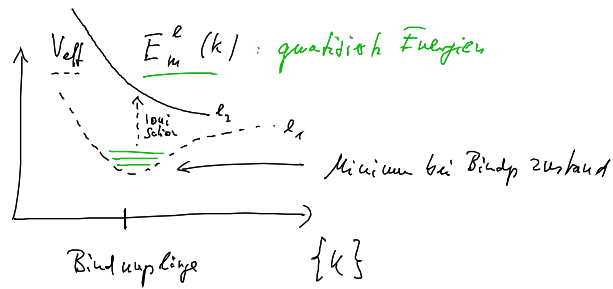 Veff
E_m^l (k) : quantisiert Energien
l_2
l_1
Minimum bei Bindgszustand
Bindungslänge
{k}